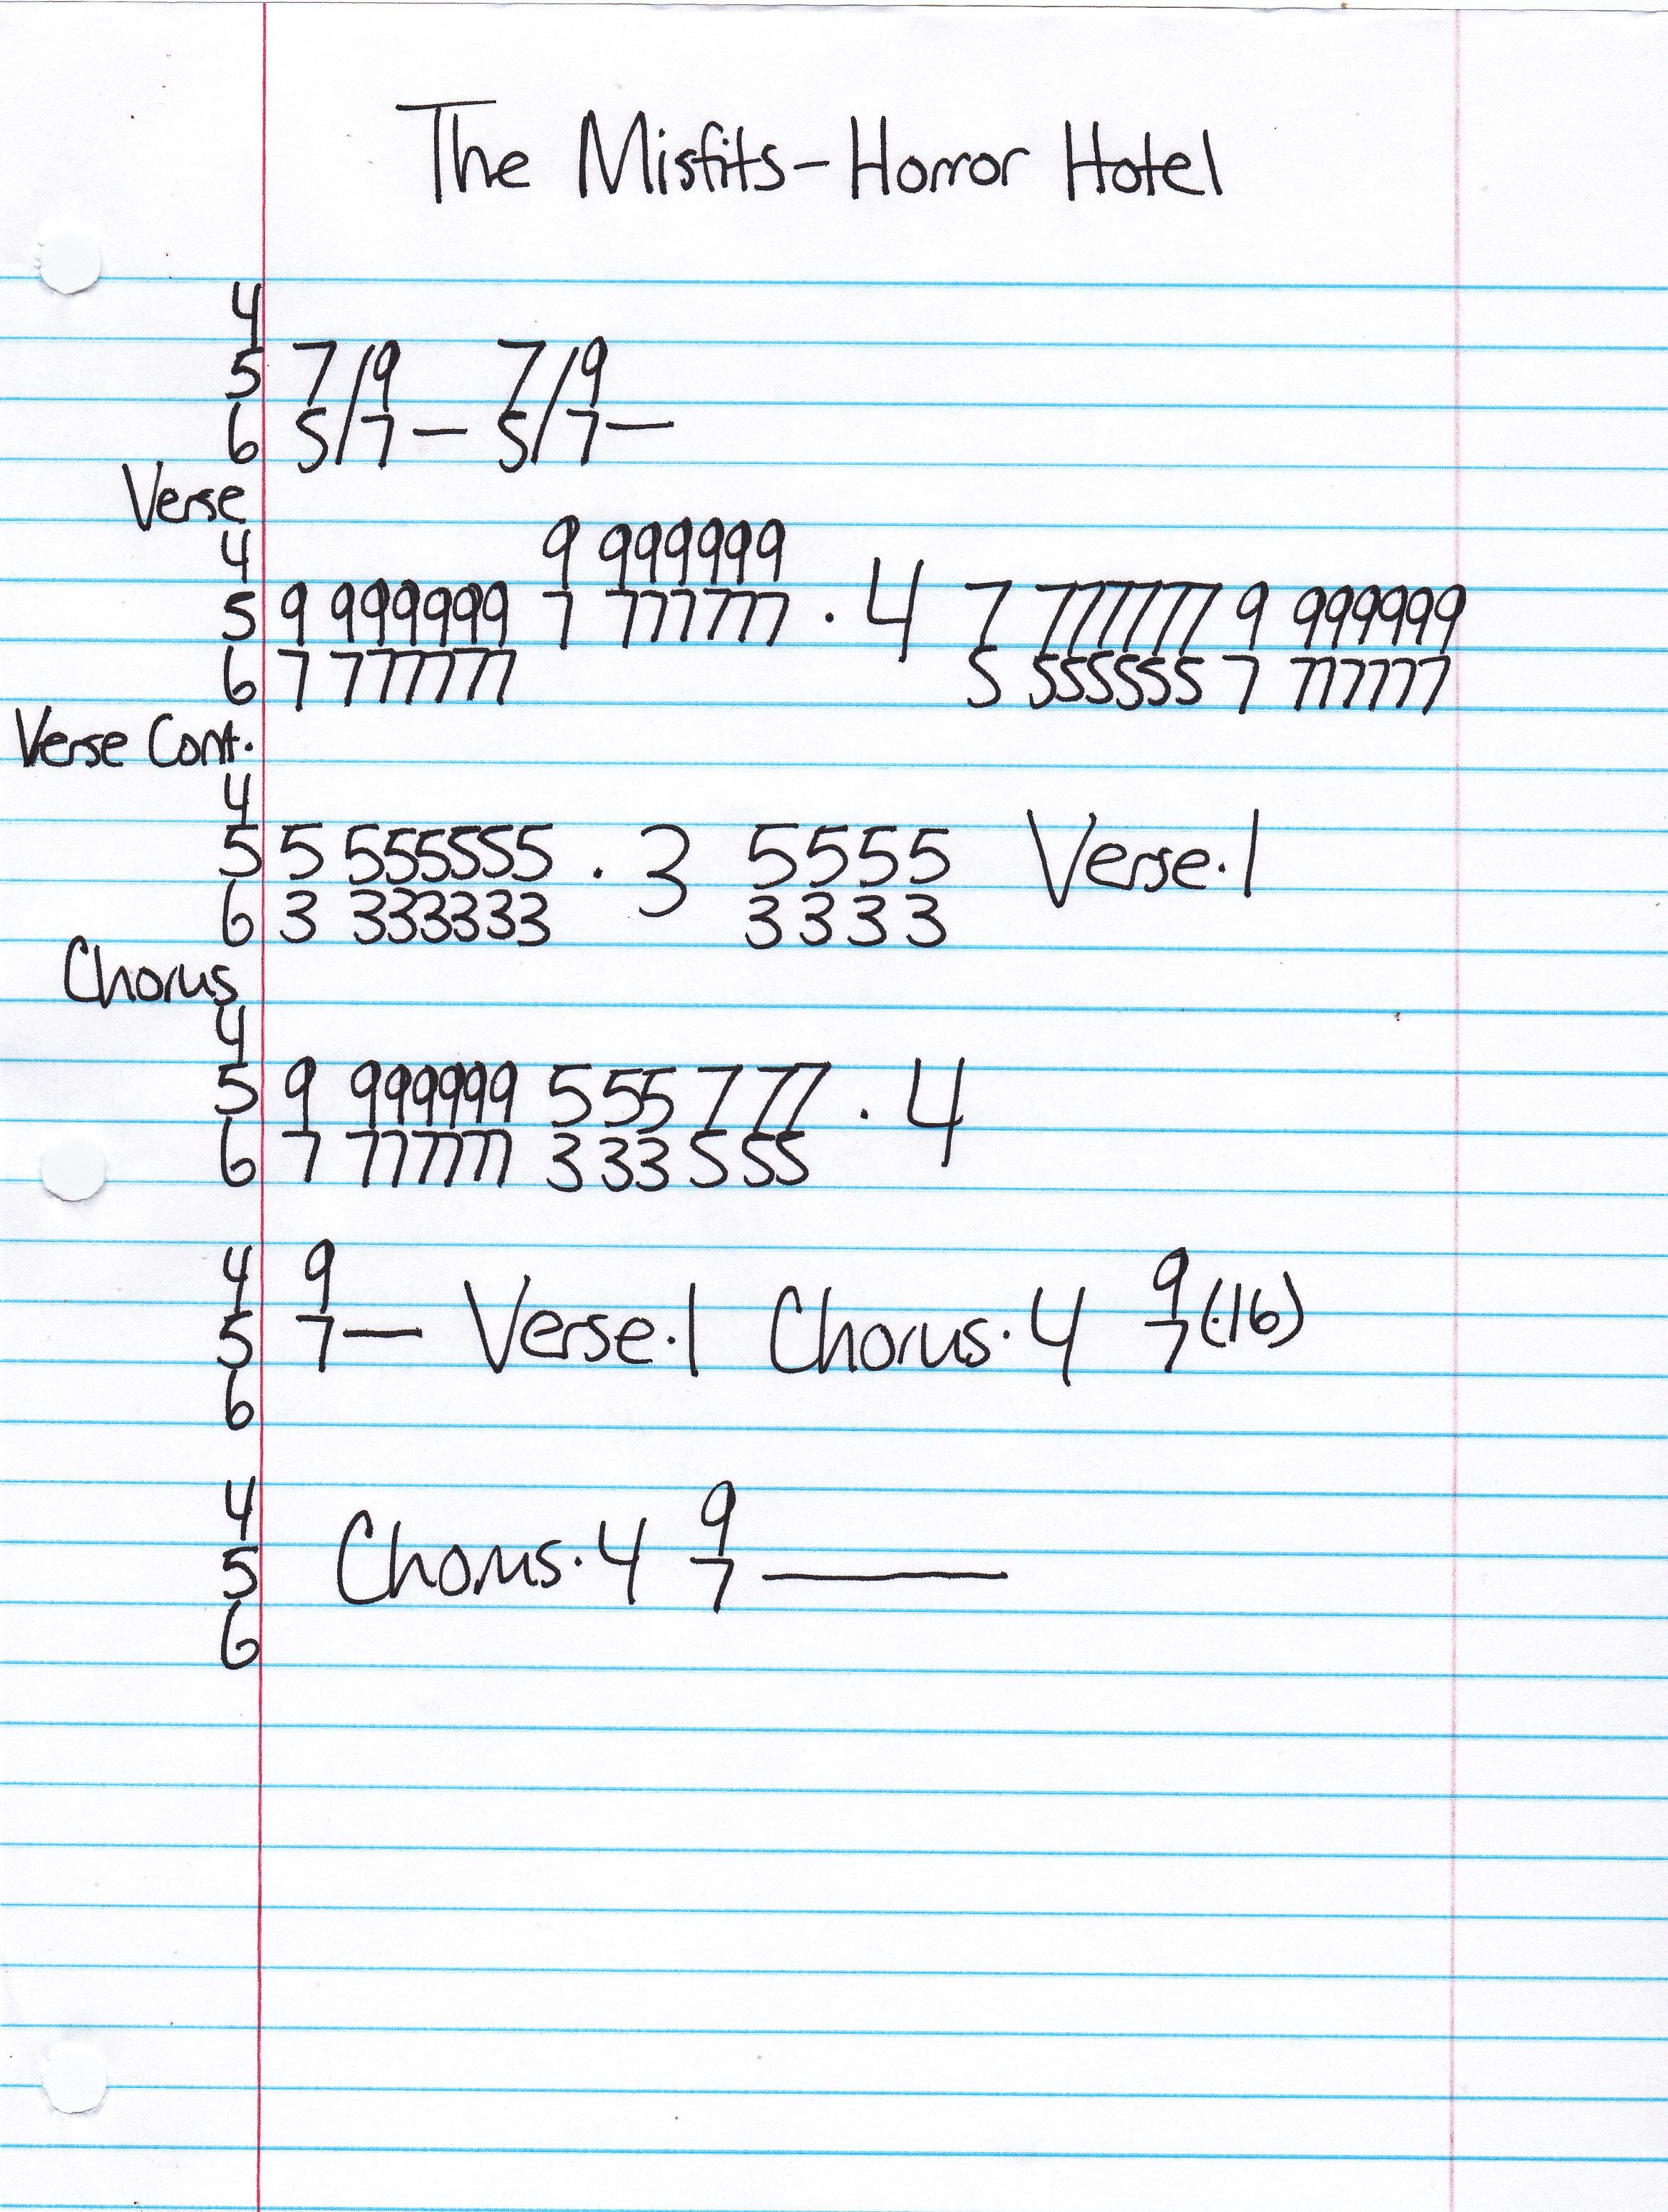 The Misfits - Horror Hotel
4
5 7/9 7/9
6 5/7 — 5/7 —
Verse
4 9 999999
5 9 999999 7 777777 . 4 7 777777 9 999999
6 7 777777 5 555555 7 777777
Verse Cont.
4
5 5 555555 . 3 5555 Verse.1
6 3 333333 3333
Chorus
4
5 9 999999 5 55 7 77 . 4
6 7 777777 3 33 5 55
4 9 9
5 7 — Verse.1 Chorus.4 7(.16)
6
4 9
5 Chorus.4 7 —
6